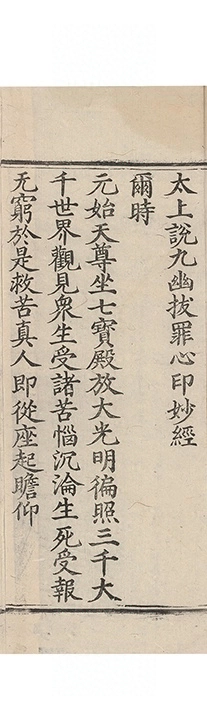 太上說九幽拔罪心印妙經
爾時
元始天尊坐七寶殿放大光明徧照三千大
千世界觀見衆生受諸苦惱沉淪生死受報
无窮於是救苦真人即從座起瞻仰